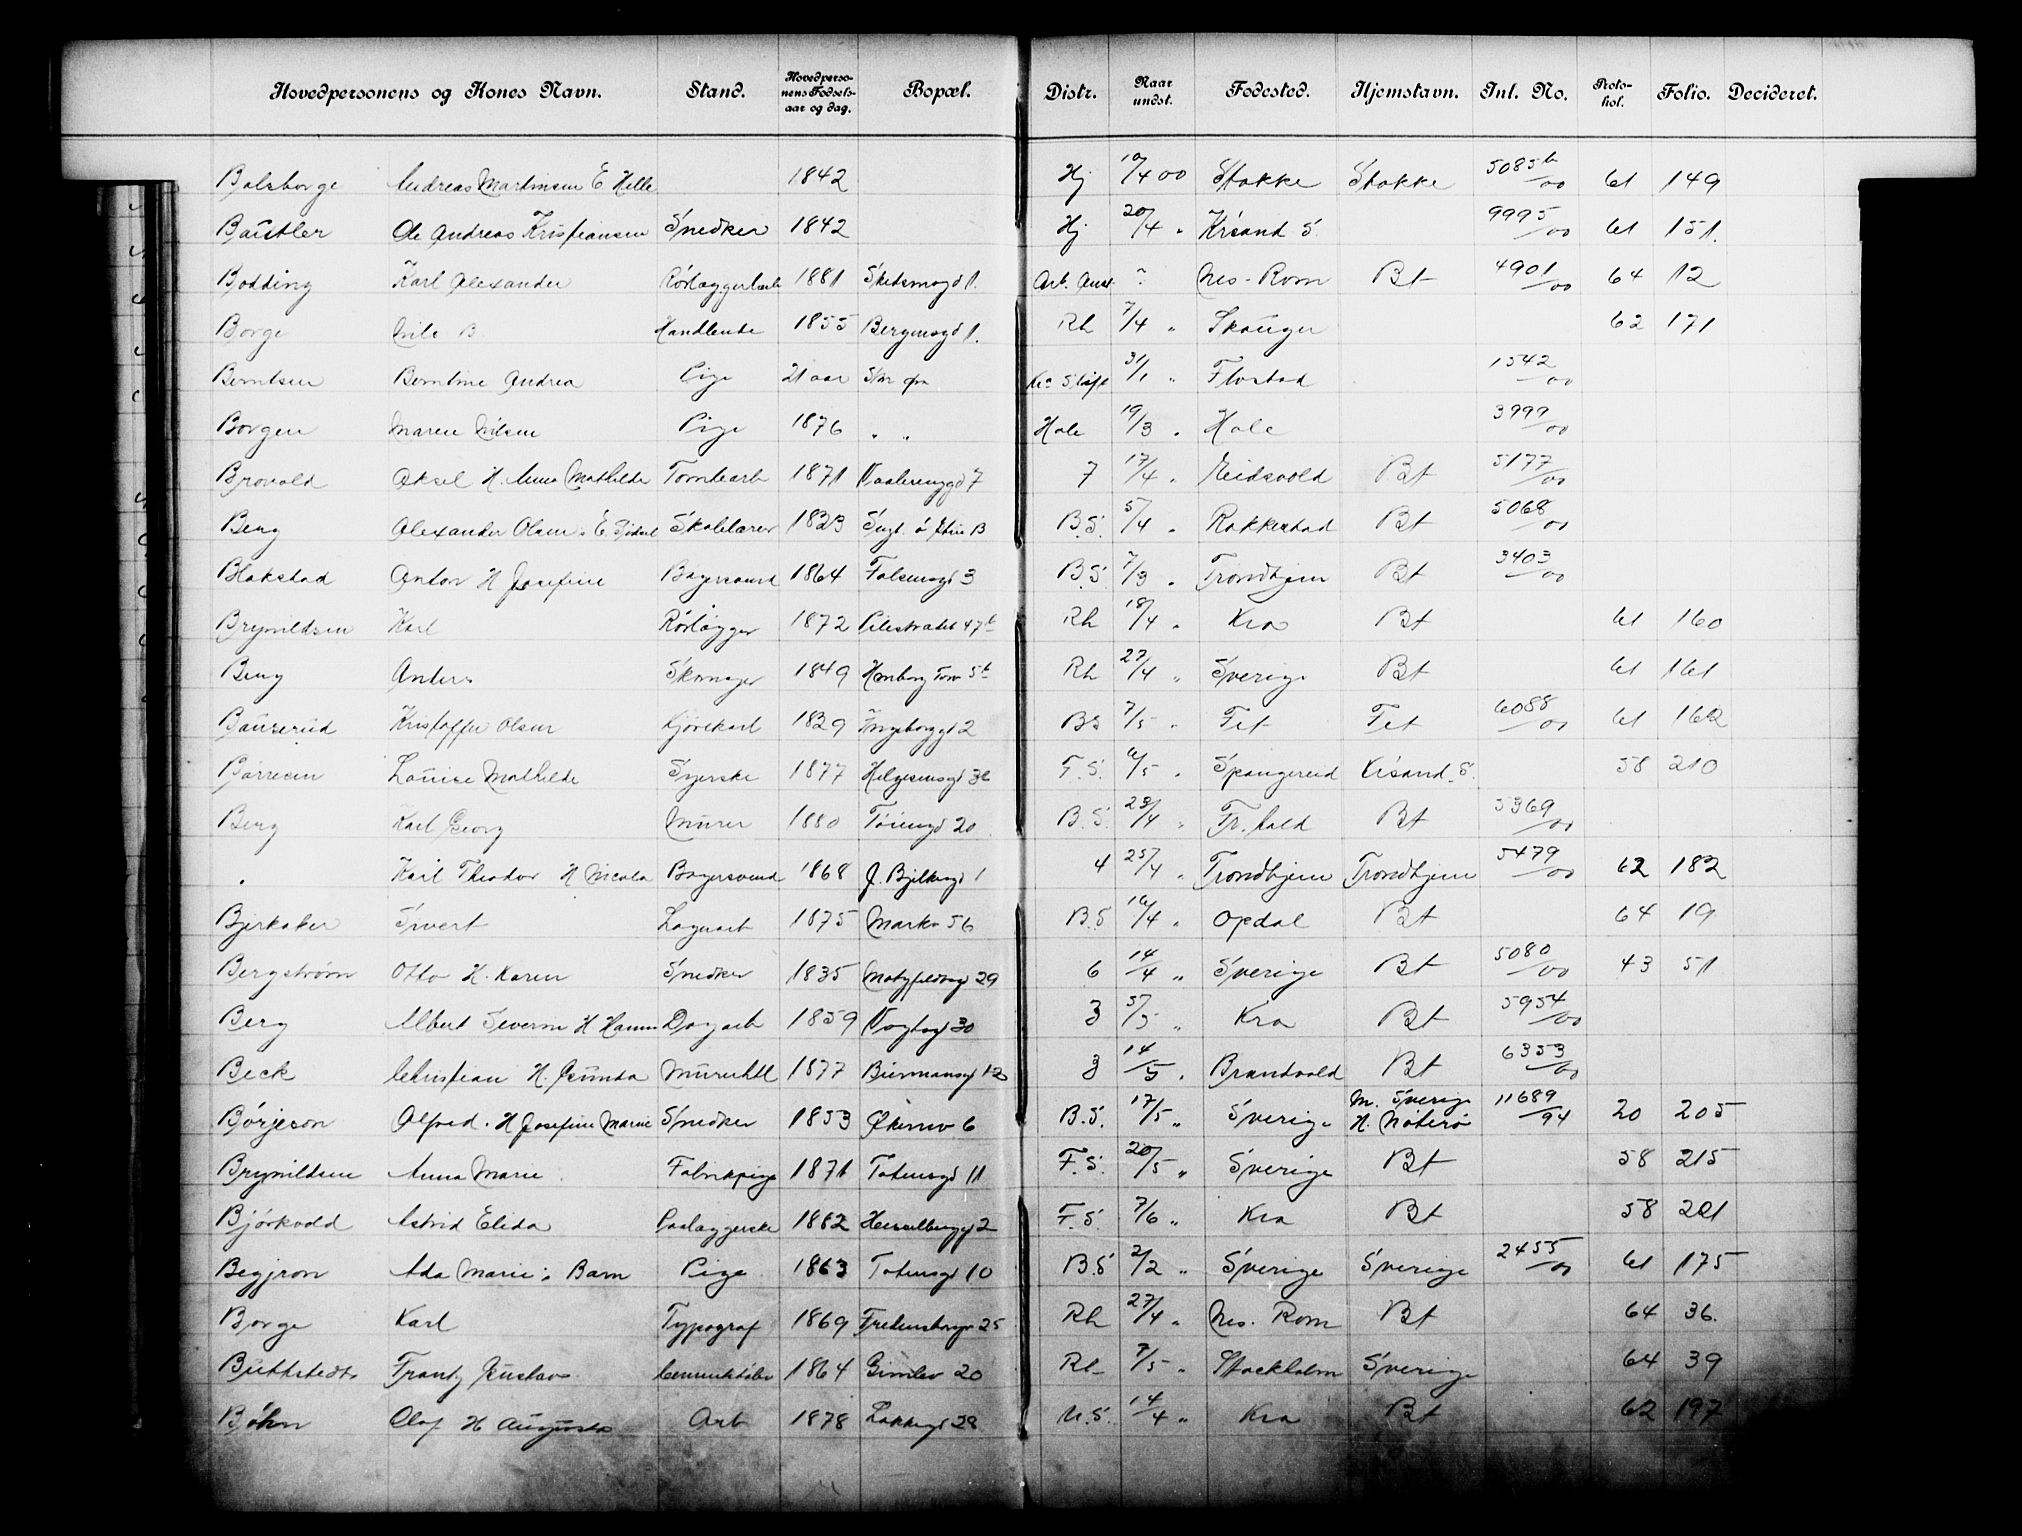 Hovedpersonens og Kones Navn. Stand. Hovedpersonens Fødselsaar og dag. Bopæl. Distr. Naar undst. Fødested. Hjemstavn. Int. No. Protokol. Folio. Decideret.
Balsborge Andreas Martinsen E Helle 1842 Hj 10/4 00 Stokke Stokke 5085b/00 61 149
Baustler Ole Andreas Kristiansen Snedker 1842 Hj 20/4 " Krsand S. 9995/00 61 151.
Bodding Karl Alexander 1881 Skedsmogd 1. Arb. Anst. ? Nes-Rom Bt 4901/00 64 12
Borge Nils B. Handlende 1855 Bergensgd 1. Rh 7/4 " Skauger 62 171
Berntsen Berntine Andrea Pige 21 aar 31/1 " Flostad 1542/00
Borgen Maren Nilsen Pige 1876 " " Hole 19/3 " Hole 3999/00
Brovold Aksel H. Anna Mathilde Tomtearb 1871 Vaalerenggd 7 7 17/4 " Eidsvold Bt 5177/00
Berg Alexander Olsen Skolelærer 1823 B.S. 5/4 " Rakkestad Bt 5068/00
Blakstad Anton H Josefine Bagersvend 1864 Falsensgd 3 B.S. 7/3 " Trondhjem Bt 3403/00
Brynildsen Karl Rörlægger 1872 Pilestrædet 47b Rh 18/4 " Kra Bt 61 160
Berg Anders Skomager 1849 5b Rh 27/4 " Sverige Bt 61 161
Bauserud Kristoffer Olsen Kjörekarl 1829 Ingeborggd 2 BS 7/5 " Fet Fet 6088/00 61 162
Börresen Louise Mathilde Syerske 1877 Helgesensgd F.S. 6/5 " Spangereid Krsand. S. 58 210
Berg Karl Georg Murer 1880 Töiengd 20 B.S. 23/4 " Fr.hald Bt 5369/00
" Karl Theodor H Nicola Bagersvend 1868 J. Bjelkesgd 1 4 25/4 " Trondhjem Trondhjem 5479/00 62 182
Bjerkaker Sivert Løsarb 1875 Markv 56 B.S 16/4 " Opdal Bt 64 19
Bergström Otto H. Karen Snedker 1835 Motzfeldtsgd 29 6 14/4 " Sverige Bt 5080/00 43 51
Berg Albert Severin H Hanna Dagarb 1859 Vogtsgd 30 3 5/5 " Kra Bt 5954/00
Beck Christian H. Gunda Murerhdl 1877 Biermansgd 12 3 14/5 " Brandvold Bt 6353/00
Börjeson Alfred. H Josefine Marie Snedker 1853 Økernv 6 B.S. 17/5 " Sverige M. Sverige H. Nöterö 11689/94 20 205
Brynildsen Anna Marie Fabrikpige 1871 Totensgd 11 F.S. 20/5 " Sverige Bt 58 215
Björkvold Astrid Elida Paalæggerske 1882 Hesselberggd 2 F.S. 7/6 " Kra Bt 58 221
Begjron Ada Marie; Barn Pige 1863 Totensgd 10 B.S 2/2 " Sverige Sverige 2455/00 61 175
Borge Karl Typograf 1869 Fredensborgv 25 Rh 27/4 " Nes. Rom Bt 64 36.
Buttstedt Frantz Gustav 1864 Gimlev 20 Rh 7/5 " Stockholm Sverige 64 39
Bøhn Olaf H Augusta Arb 1878 Lakkegd 28 U.S. 14/4 " Kra Bt 62 197